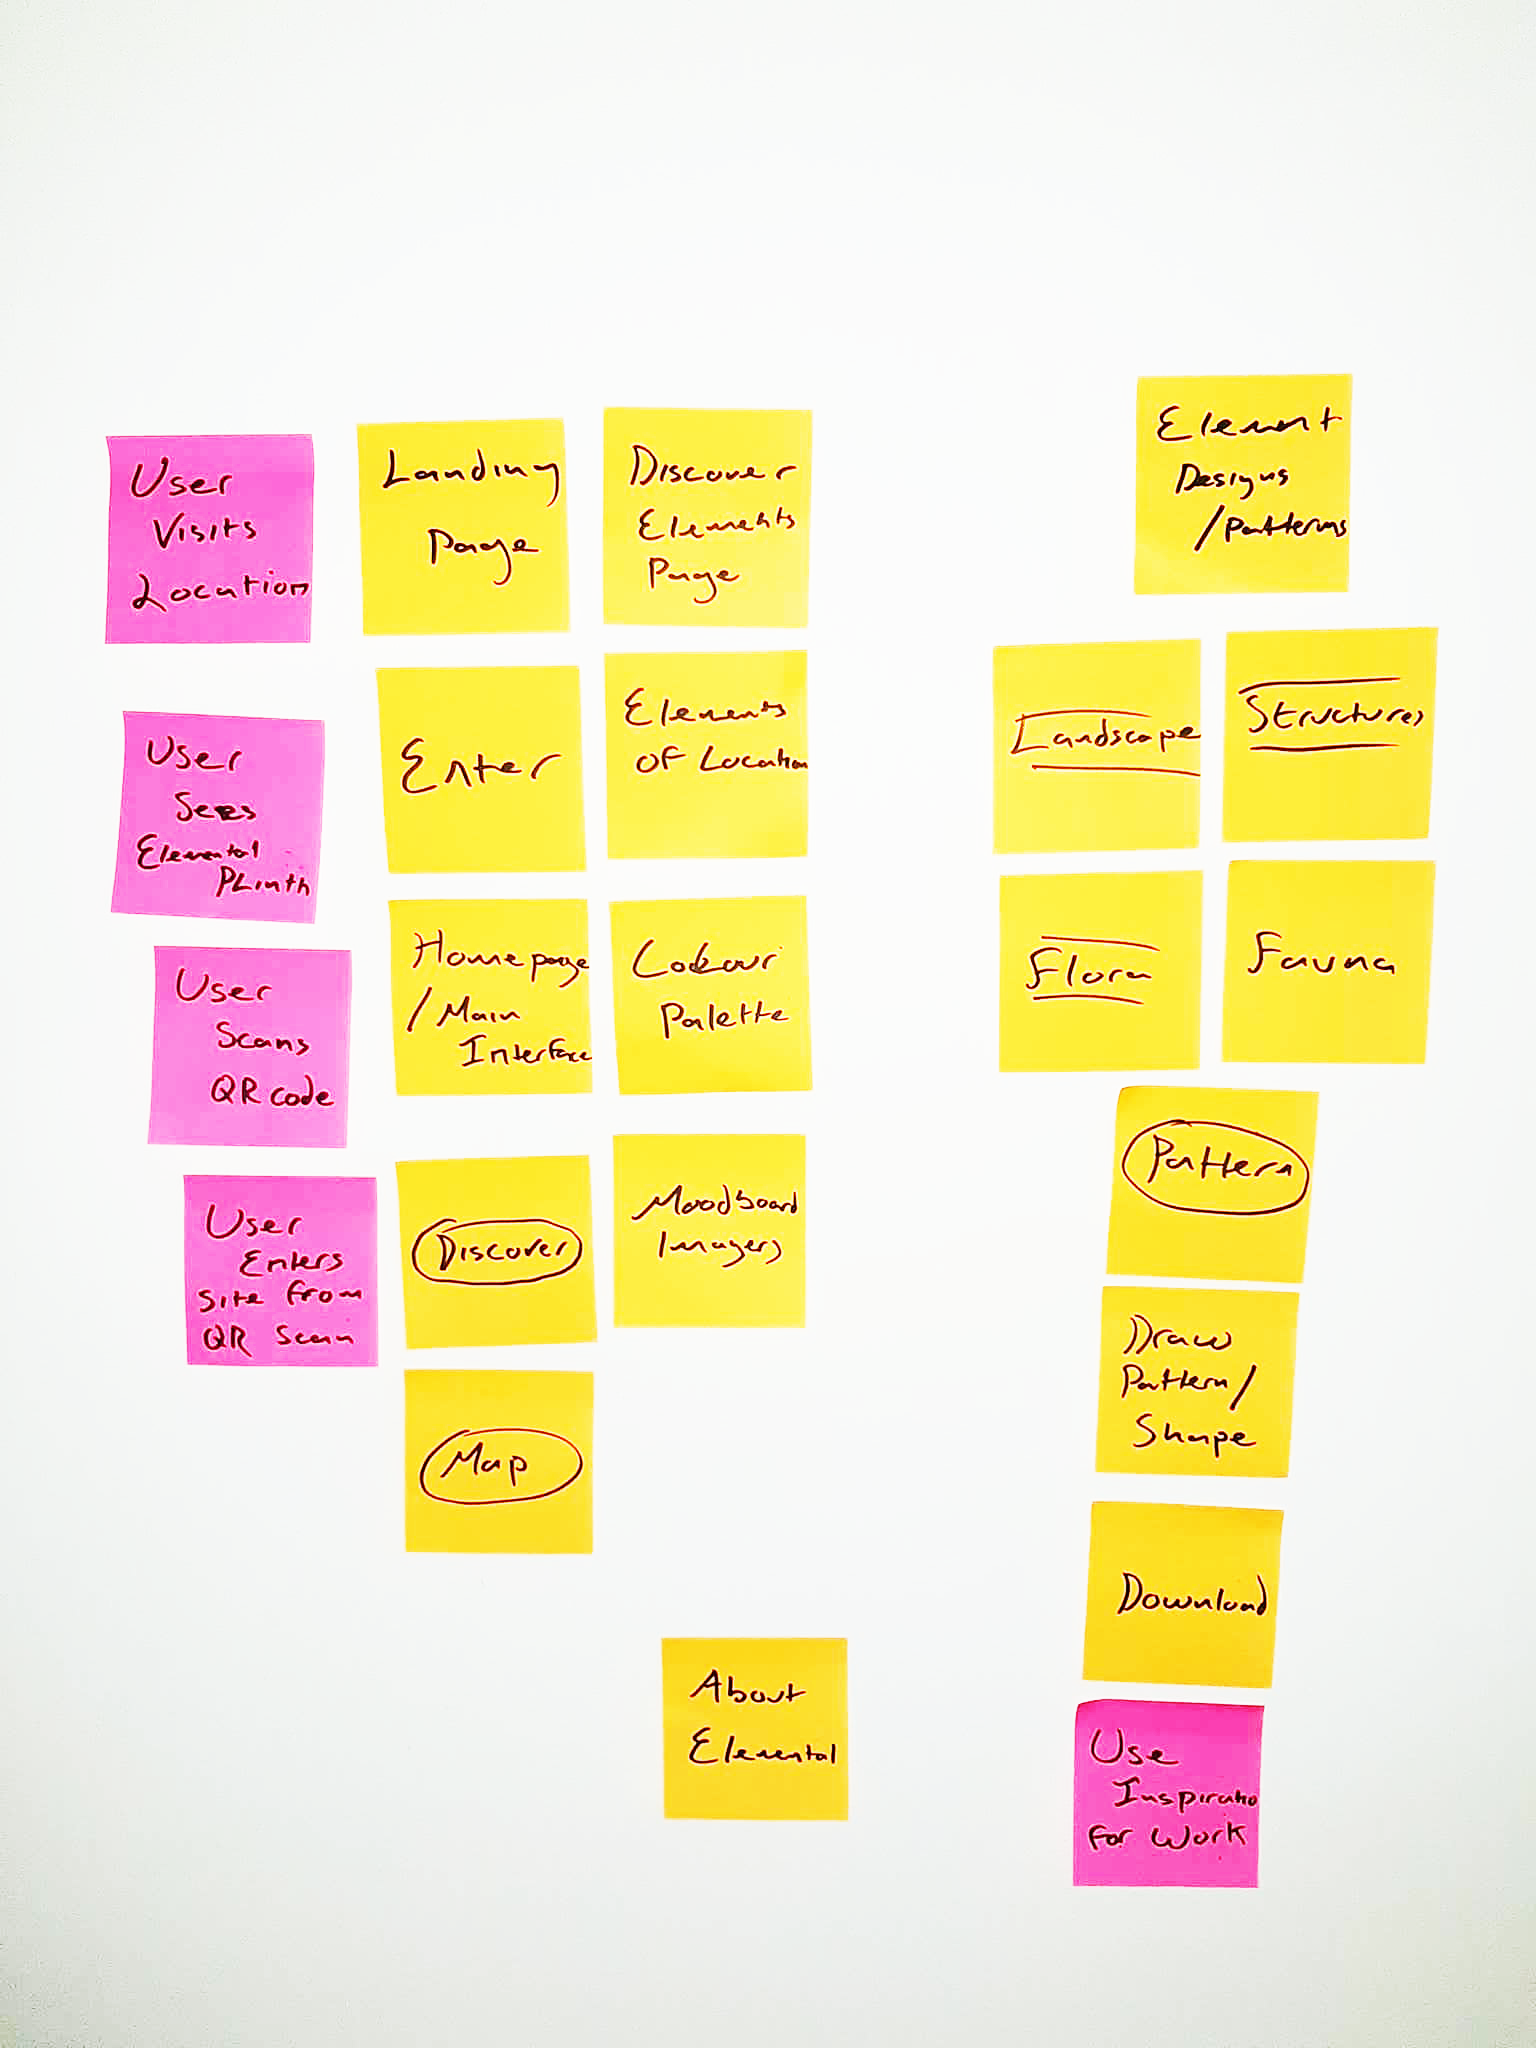 User
Visits
Location
User
Sees
Elemental
Plinth
User
Scans
QR code
User
Enters
Site from
QR Scan
Landing
Page
Enter
Homepage
/Main
Interface
Discover
Map
Discover
Elements
Page
Elements
of Location
Colour
Palette
Moodboard
Imagery
About
Elemental
Element
Designs
/Patterns
Landscape
Structures
Flora
Fauna
Pattern
Draw
Pattern/
Shape
Download
Use
Inspiratio
for Work